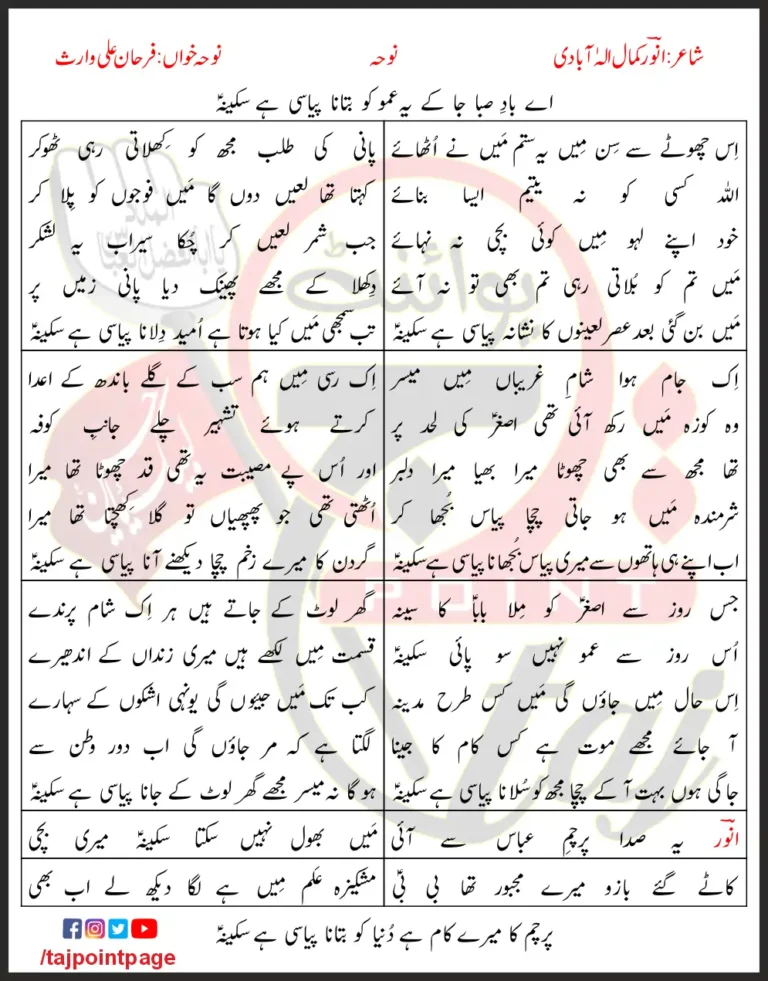 شاعر: انورؔ کمال الہٰ آبادی
نوحہ
نوحہ خواں: فرحان علی وارث
اے بادِ صبا جا کے یہ عمو کو بتانا پیاسی ہے سکینہؑ
اِس چھوٹے سے سِن مِیں یہ ستم مَیں نے اُٹھائے
اللہ کسی کو نہ یتیم ایسا بنائے
خود اپنے لہو مِیں کوئی بچی نہ نہائے
مَیں تم کو بُلاتی رہی تم بھی تو نہ آئے
مَیں بن گئی بعد عصر لعینوں کا نشانہ پیاسی ہے سکینہؑ
پانی کی طلب مجھ کو کِھلاتی رہی ٹھوکر
کہتا تھا لعیں دوں گا مَیں فوجوں کو پِلا کر
جب شمر لعیں کر چُکا سیراب یہ لشکر
دِکھلا کے مجھے پھینک دیا پانی زمیں پر
تب سمجھی مَیں کیا ہوتا ہے اُمید دِلانا پیاسی ہے سکینہؑ
اِک جام ہوا شامِ غریباں مِیں میسر
وہ کوزہ مَیں رکھ آئی تھی اصغرؑ کی لحد پر
تھا مجھ سے بھی چھوٹا میرا بھیا میرا دلبر
شرمندہ مَیں ہو جاتی چچا پیاس بُجھا کر
اب اپنے ہی ہاتھوں سے میری پیاس بُجھانا پیاسی ہے سکینہؑ
اِک رسی مِیں ہم سب کے گلے باندھ کے اعدا
کرتے ہوئے تشہیر چلے جانبِ کوفہ
اور اُس پے مصیبت یہ تھی قد چھوٹا تھا میرا
اُٹھتی تھی جو پھپھیاں تو گلا کِھچتا تھا میرا
گردن کا میرے زخم چچا دیکھنے آنا پیاسی ہے سکینہؑ
جس روز سے اصغرؑ کو مِلا باباؑ کا سینہ
اُس روز سے عمو نہیں سو پائی سکینہؑ
اِس حال مِیں جاؤں گی مَیں کس طرح مدینہ
آ جائے مجھے موت ہے کس کام کا جینا
جاگی ہوں بہت آ کے چچا مجھ کو سُلانا پیاسی ہے سکینہؑ
گھر لوٹ کے جاتے ہیں ہر اِک شام پرندے
قسمت مِیں لکھے ہیں میری زنداں کے اندھیرے
کب تک مَیں جیئوں گی یونہی اشکوں کے سہارے
لگتا ہے کہ مر جاؤں گی اب دور وطن سے
ہو گا نہ میسر مجھے گھر لوٹ کے جانا پیاسی ہے سکینہؑ
انورؔ یہ صدا پرچمِ عباس سے آئی
مَیں بھول نہیں سکتا سکینہؑ میری بچی
کاٹے گئے بازو میرے مجبور تھا بی بیؑ
مشکیزہ عَلم مِیں ہے لگا دیکھ لے اب بھی
پرچم کا میرے کام ہے دُنیا کو بتانا پیاسی ہے سکینہؑ
/tajpointpage
پوائنٹ
POINT
taj